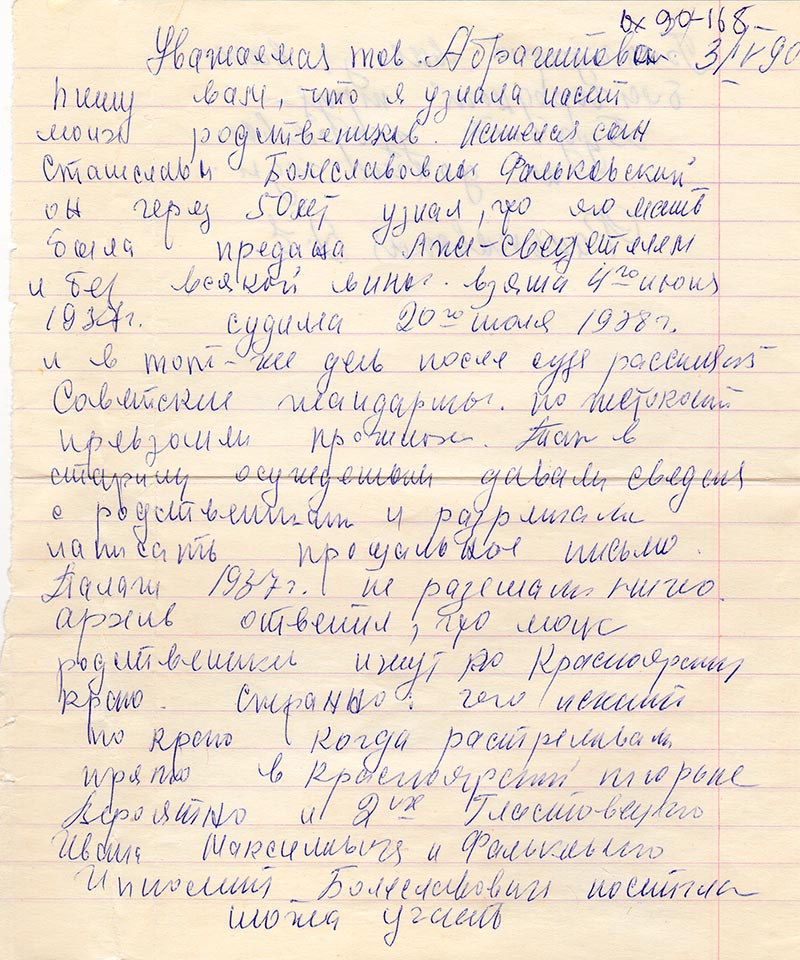 вх 90-168
Уважаемая тов. Абрамитова 3/IV 90
Пишу вам, что я узнала насчт
моих родствеников. Нашелся сын
Сташславы Болеславовны Фальковский
он через 50 лет узнал, что его мать
была предана лже-сведетелем
и без всякой вины. взята 4го июня
1937г. судима 20го июля 1938г.
и в тот-же день после суда
Советские жандармы. по жестокости
превзошли прошлых. Так в
старину осужденым давали
с родственикам и разрешали
написать прощальное письмо.
Палачи 1937г. не ничего.
архив ответил, что моих
родствеников ищут по Красноярскому
краю. Странно: чего искать
по краю когда
прямо в Красноярской тюрьме
Вероятно и 2ух
Ивана Максимовича и Фальковского
Болеславович постигла
таже участь